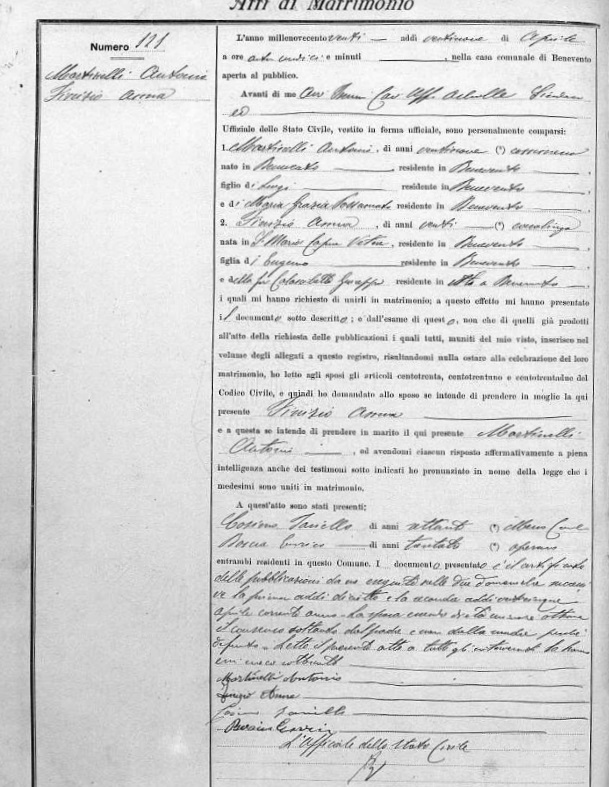 Atti di Matrimonio
Numero 121
Martinelli Antonio
Finizio Anna
L'anno millenovecento venti — addì ventinove di Aprile
a ore e minuti , nella casa comunale di Benevento
aperta al pubblico.
Avanti di me Cav Uff Achille
Uffiziale dello Stato Civile, vestito in forma ufficiale, sono personalmente comparsi:
1. Martinelli Antonio, di anni ventinove (*)
nato in Benevento, residente in Benevento
figlio di Luigi residente in Benevento
e di Maria Grazia residente in Benevento
2. Finizio Anna, di anni venti (*) casalinga
nata in S. Maria Capua Vetere, residente in Benevento
figlia di Eugenio residente in Benevento
e della fu residente in a Benevento
i quali mi hanno richiesto di unirli in matrimonio; a questo effetto mi hanno presentato
il documento sotto descritto; e dall'esame di questo, non che di quelli già prodotti
all'atto della richiesta delle pubblicazioni i quali tutti, muniti del mio visto, inserisco nel
volume degli allegati a questo registro, risultandomi nulla ostare alla celebrazione del loro
matrimonio, ho letto agli sposi gli articoli centotrenta, centotrentuno e centotrentadue del
Codice Civile, e quindi ho domandato allo sposo se intende di prendere in moglie la qui
presente Finizio Anna
e a questa se intende di prendere in marito il qui presente Martinelli
Antonio, ed avendomi ciascun risposto affermativamente a piena
intelligenza anche dei testimoni sotto indicati ho pronunziato in nome della legge che i
medesimi sono uniti in matrimonio.
A quest'atto sono stati presenti:
di anni (*)
di anni (*) operaio
entrambi residenti in questo Comune. I documento presentato è il certificato
delle pubblicazioni da me eseguite nelle due domeniche
la prima addì diciotto e la seconda addì venticinque
aprile corrente anno. La sposa essendo di età minore ottiene
il consenso soltanto dal padre e non dalla madre perché
defunta. Letto il presente atto a tutti gli intervenuti lo hanno
con meco sottoscritto
Martinelli Antonio
Anna
L'Ufficiale dello Stato Civile